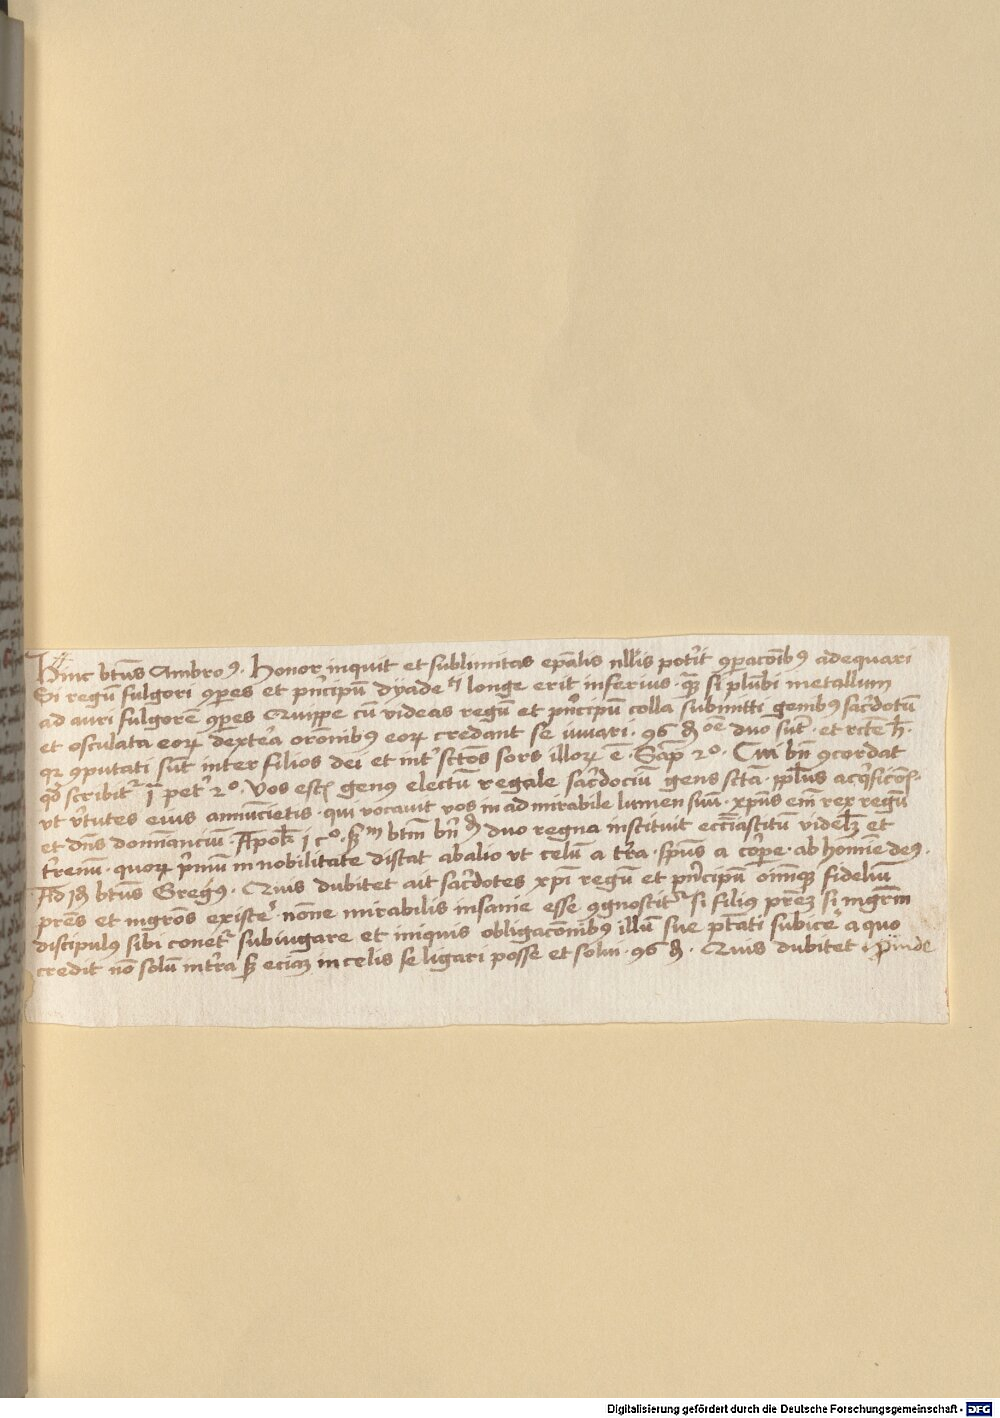 Hinc btūs Ambroꝰ. Honor inquit et sublimitas epāłis nłłis potit ꝯpacōibꝰ adequari
Si regū fulgori ꝯpes et pncipū dyade longe erit inferius. qͣꝫ si plūbi metallum
ad auri fulgorē ꝯpes Quippe cū videas regū et pncipū colla submitti genibꝰ sacdotū
et osculata eoꝝ dextera orōnibꝰ eoꝝ credant se iuvari. 96 di duo sūt. et rcte
qꝛ ꝯputati sūt inter filios dei et int sctōs sors illoꝝ ē. Sap 2º. Cui bn ꝯcordat
qd scribit j pet 2º. Vos estis genꝰ electū regale sacdociū gens scta. ppłus acqͥsicōis.
vt vtutes eius annūcietis. qui vocavit vos in admirabile lumen suū. xpūs em rex regū
et dn̄s domīanciū. Apoł j cº. btm bn duo regna instituit eccīasticū videłꝫ et
trenū. quoꝝ pmū in nobilitate distat ab alio vt celū a tra. spūs a corpe. ab homīe deꝰ.
Ad btūs Gregꝰ. Quis dubitet ait sacdotes xpi regū et pncipū oīmqꝫ fideliū
pres et mgros existe. nōne mirabilis insanie esse ꝯgnoscit si filiꝰ prem si mgrm
discipulꝰ sibi conet subiugare et iniquis obligacōnibꝰ illū sue ptati subice a quo
credit nō solū in tra sꝫ eciaꝫ in celis se ligari posse et solvi. 96 di. Quis dubitet